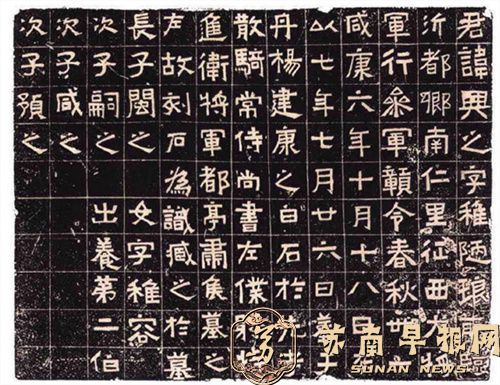 君諱興之字稚陋琅耶臨
沂都鄉南仁里征西大將
軍行參軍贛令春秋卅
咸康六年十月十八日
以七年七月廿六日葬于
丹楊建康之白石於
散騎常侍尚書左僕射特
進衛將軍都亭肅侯墓之
左故刻石為識臧之於墓
長子閩之 女字稚容
次子嗣之 出養第二伯
次子咸之
次子預之
苏南早报网
SUNAN NEWS